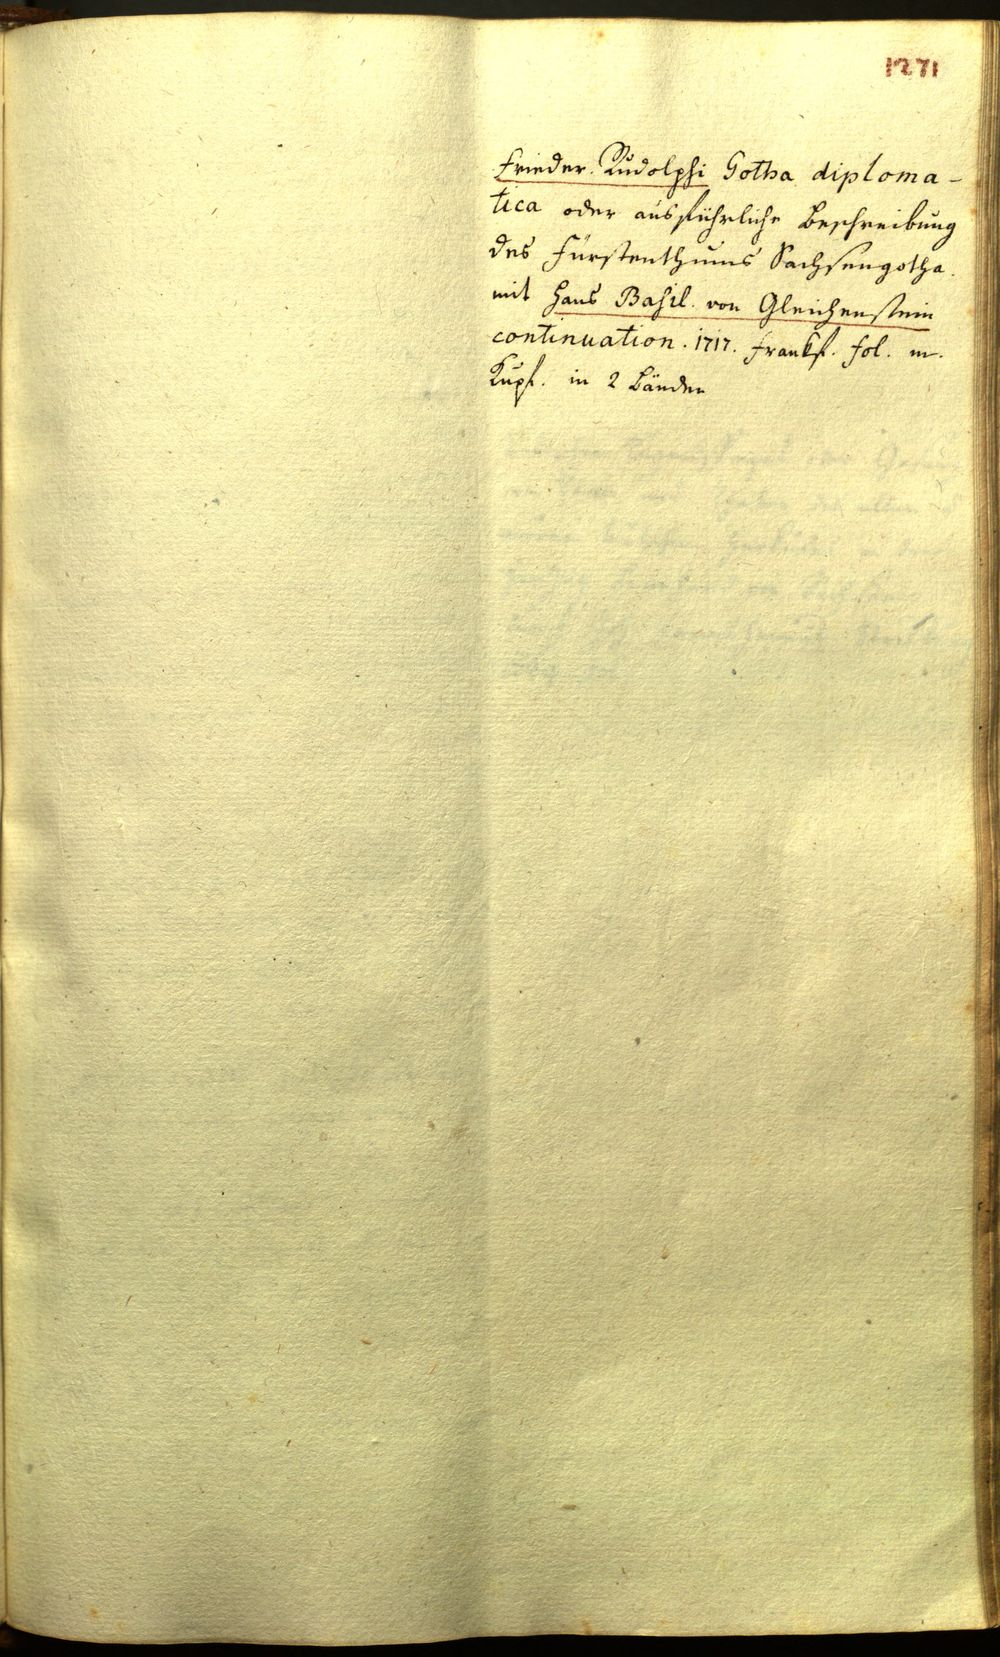 1271
Frieder. Rudolphi Gotha diploma-
tica oder ausführliche Beschreibung
des Fürstenthums Sachsengotha.
mit Hans Basil. von Gleichenstein
continuation. 1717. Frankf. fol. m.
Kupf. in 2 Bänden